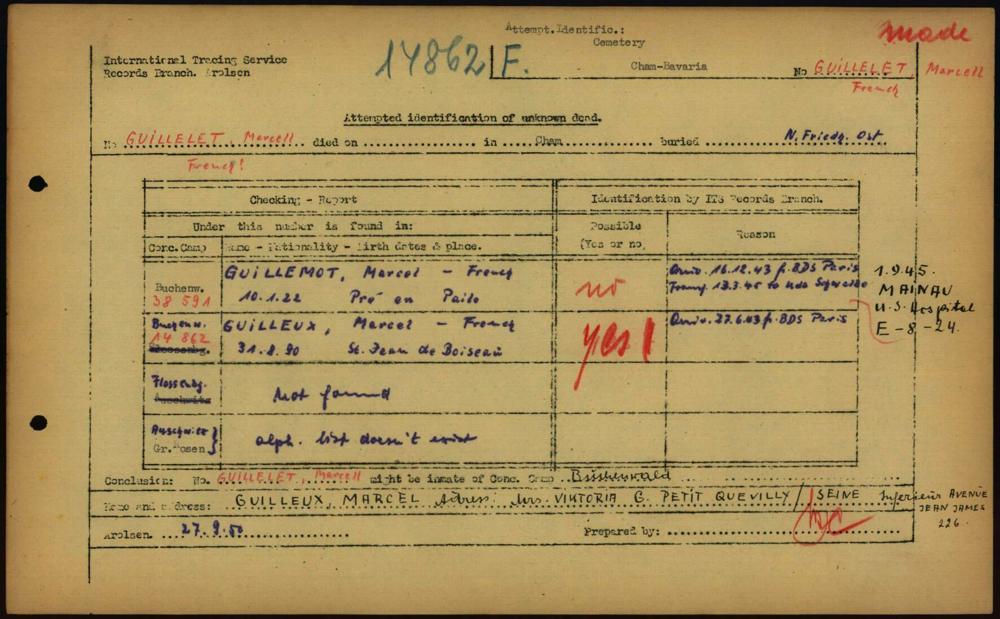 Attempt. Identific.:
Cemetery
Cham-Bavaria
made
International Tracing Service
Records Branch. Arolsen
14862 F.
No GUILLELET, Marcell
French
Attempted identification of unknown dead.
No GUILLELET, Marcell died on in Cham buried N. Friedh. Ost
French!
Checking - Report
Identification by ITS Records Branch.
Under this number is found in:
Possible
(Yes or no)
Reason
Conc.Camp
Name - Nationality - Birth dates & place.
Buchenw.
38 591
GUILLEMOT, Marcel - French
10.1.22 Pré en Pail
no
Arriv. 16.12.43 f. BDS Paris
Transf. 13.3.45 to Kdo
1.9.45.
MAINAU
U.S. Hospital
E-8.-24.
Buchenw.
14 862
GUILLEUX, Marcel - French
31.8.90 St. Jean de Boiseau
yes!
Arriv. 27.6.43 f. BDS Paris
Flossenbg.
Auschwitz
Not found
Auschwitz }
Gr.Rosen
alph. list doesn't exist
Conclusion: No. GUILLELET, Marcell might be inmate of Conc. Camp Buchenwald
Name and address: GUILLEUX, MARCEL Adress: Mrs. VIKTORIA G. PETIT QUEVILLY / SEINE
AVENUE
JEAN JAMES
226.
Arolsen. 27.9.50 Prepared by: